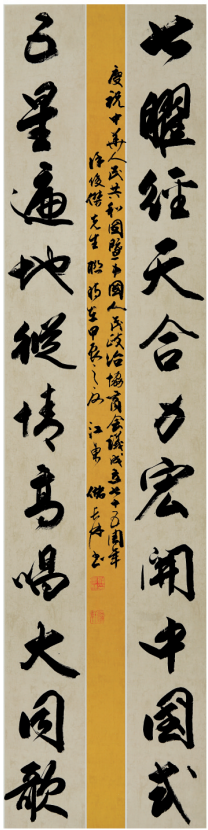 七曜经天合力宏开中国式
庆祝中华人民共和国暨中国人民政治协商会议成立七十五周年
俊杰先生联时在甲辰之江东书
五星遍地纵情高唱大同歌